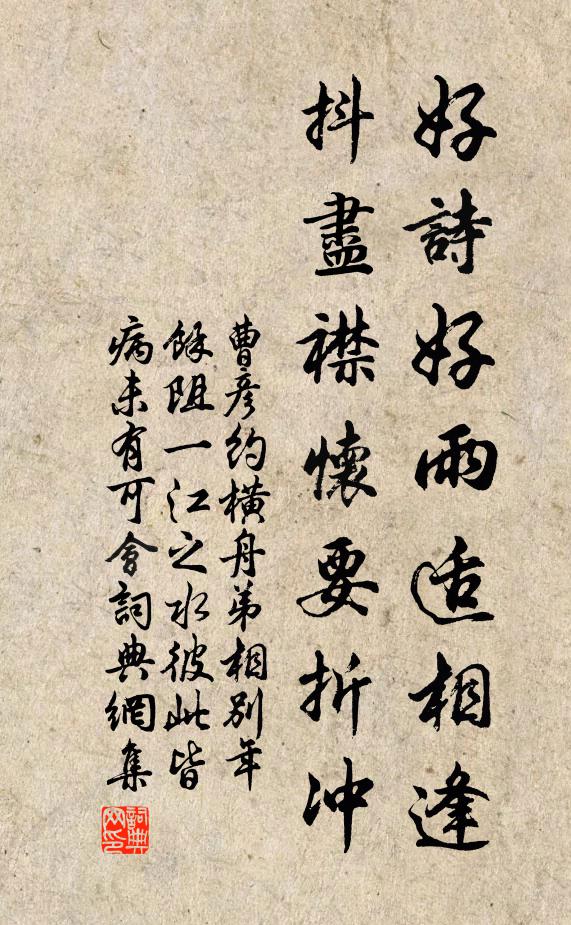 好詩好雨适相逢
抖盡襟懷要折冲
曹彦約橫舟弟相別年
餘阻一江之水彼此皆
病未有可會詞典網集
詞典網印